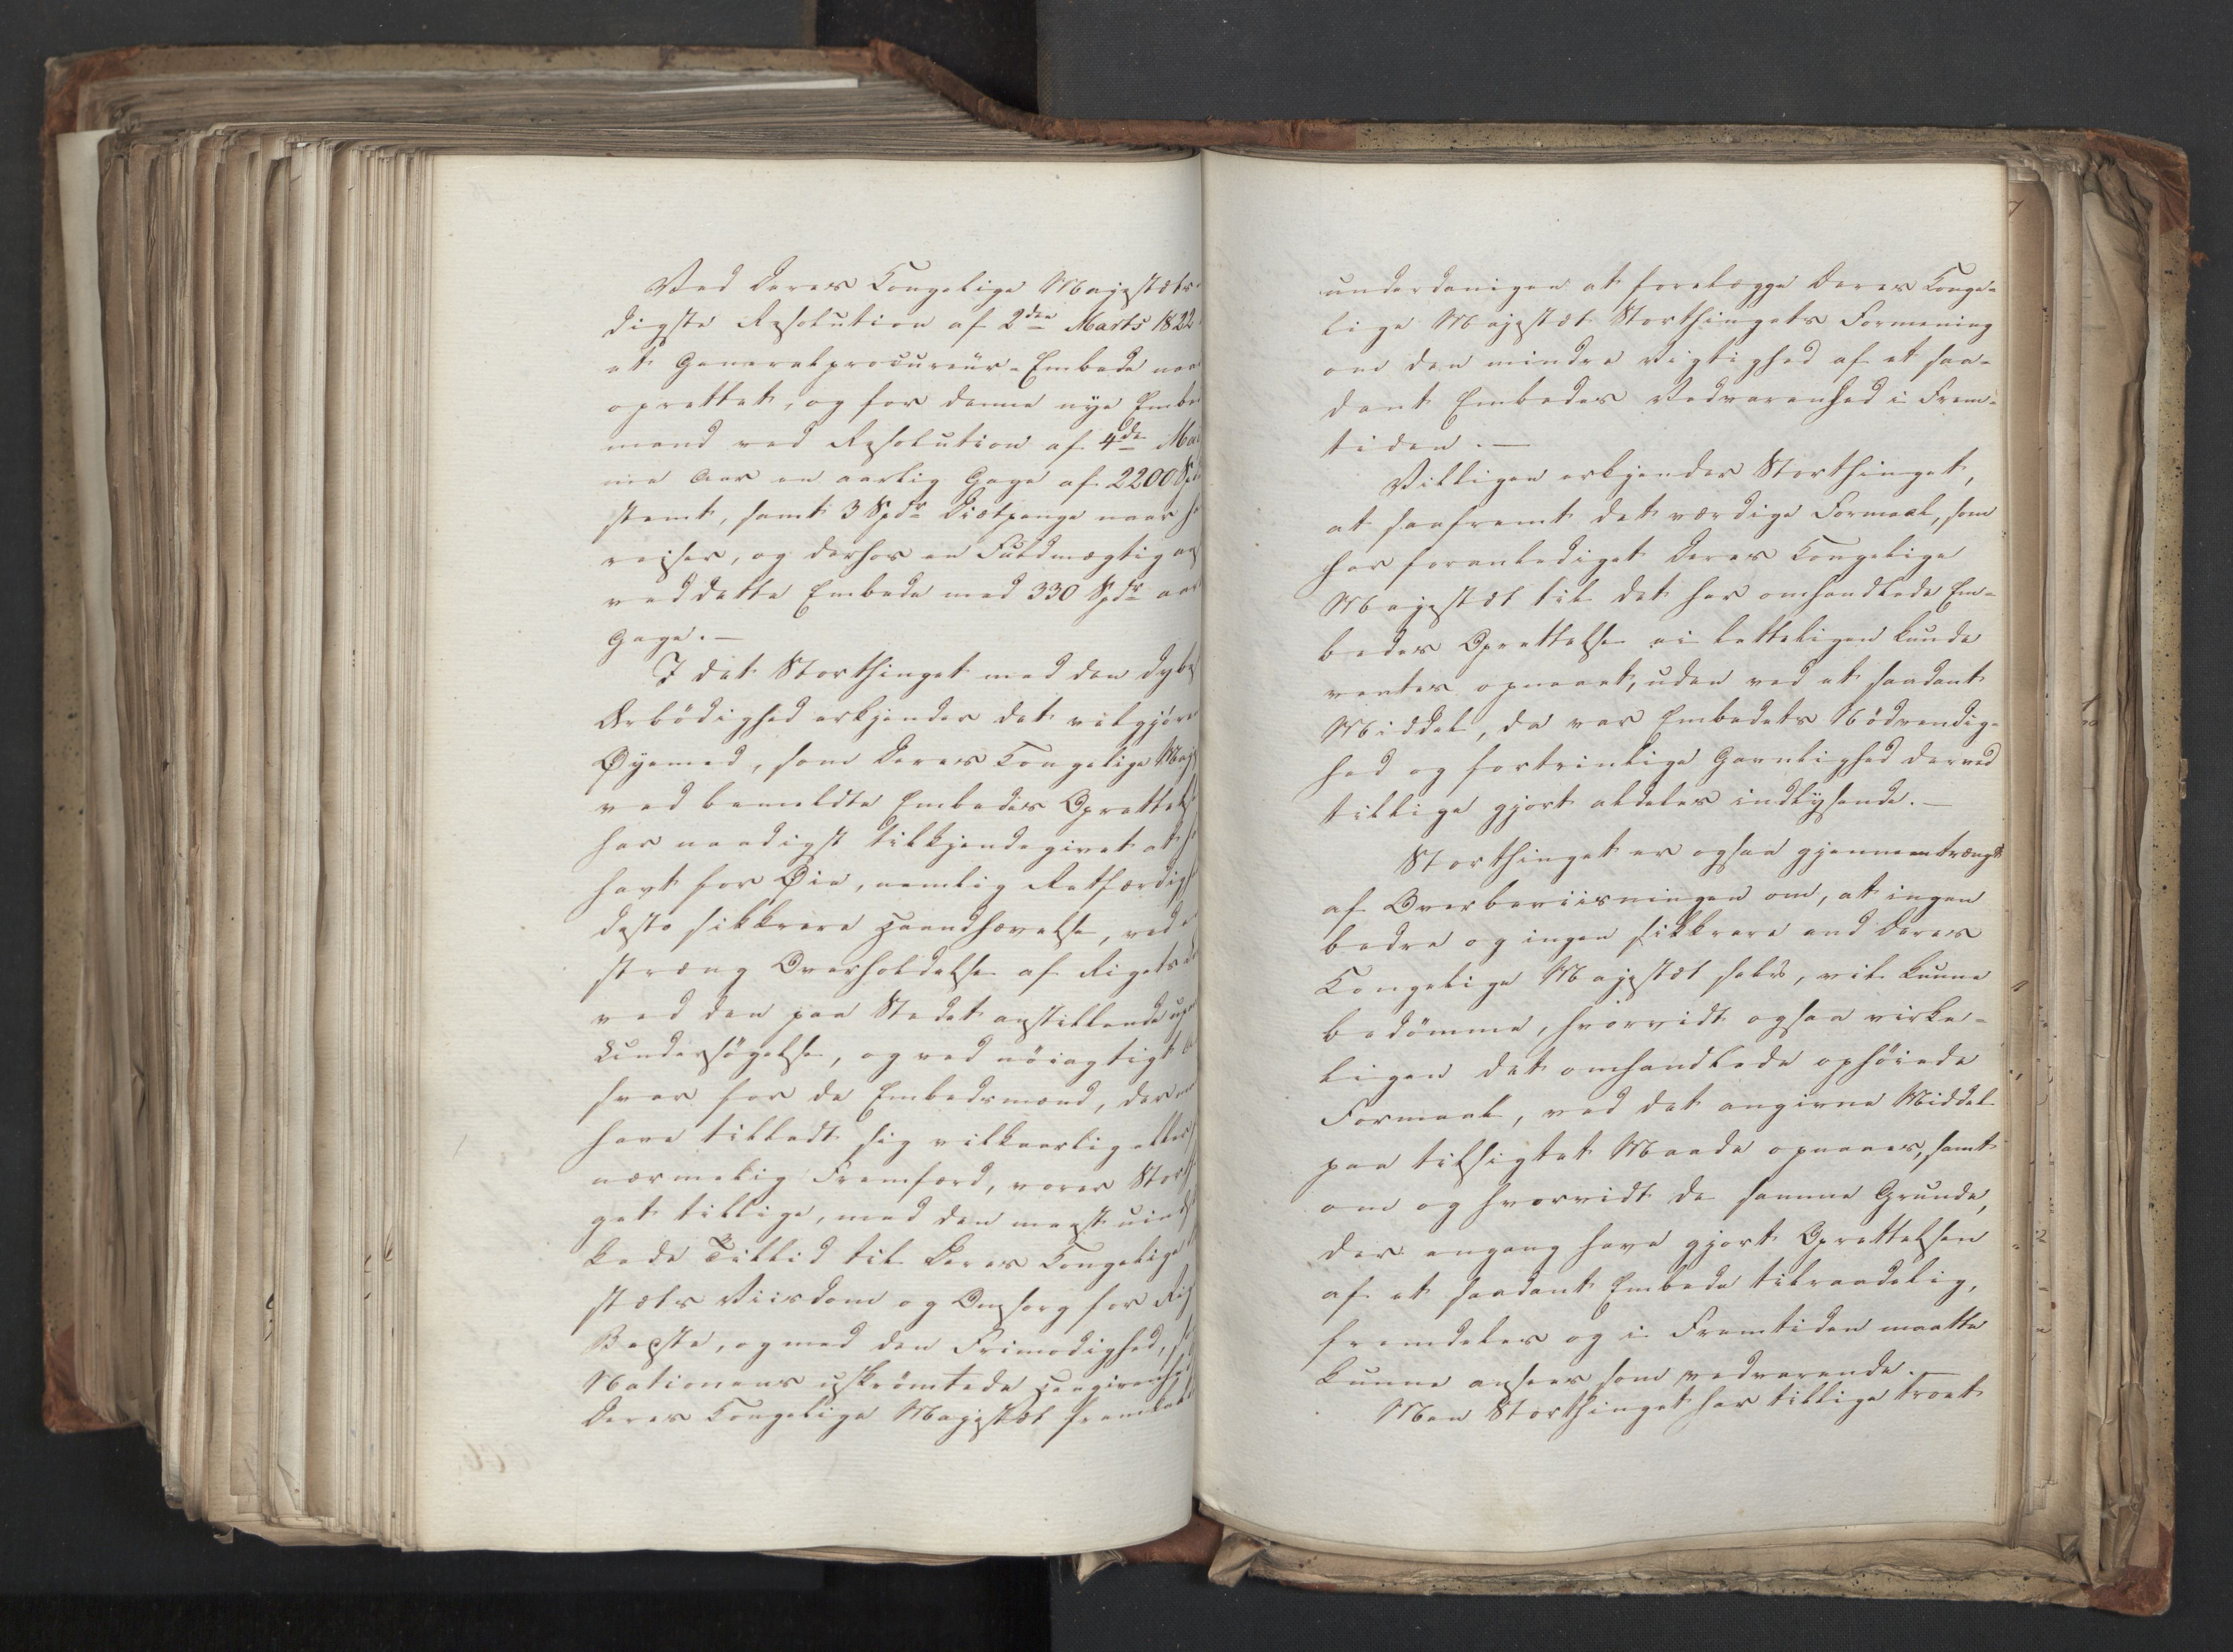 Ved Deres Kongelige Majestæts
digste Resolution af 2den Marts 1822
et Generalprocureur-Embede
oprettet, og for denne nye
mand ved Resolution af 4de
me Aar en aarlig Gage af 2200
stemt, samt 3 Spdr Diætpenge naar
reiser, og derhos en Fuldmægtig
ved dette Embede med 330 Spdr
Gage. —
I det Storthinget med den
Ærbödighed erkjender det
Øyemed, som Deres Kongelige
ved bemeldte Embedes
har naadigst tilkjendegivet at
havt for Øie, nemlig
desto sikkrere Haandhævelse, ved
streng Overholdelse af Rigets
ved den paa Stedet anstillende
Undersögelse, og ved nöiagtigt
svar for de Embedsmænd, der
have tilladt sig vilkaarlig eller
nærmelig Fremfærd, vover
get tillige, med den meest
kede Tillid til Deres Kongelige
stæts Viisdom og Omsorg for
Beste, og med den Frimodighed,
Nationens uskrömtede Hengivenhed
Deres Kongelige Majestæt
underdanigen at forelægge Deres Konge-
lige Majestæt Storthingets Formening
om den mindre Vigtighed af et saa-
dant Embedes Vedvarenhed i Frem-
tiden. —
Villigen erkjender Storthinget,
at saafremt det værdige Formaal, som
har foranlediget Deres Kongelige
Majestæt til det her omhandlede Em-
bedes Oprettelse ei letteligen kunde
ventes opnaaet, uden ved et saadant
Middel, da var Embedets Nödvendig-
hed og fortrinlige Gavnlighed derved
tillige gjort aldeles indlysende. —
Storthinget er ogsaa gjennemtrængt
af Overbeviisningen om, at ingen
bedre og ingen sikkrere end Deres
Kongelige Majestæt selv, vil kunne
bedömme, hvorvidt ogsaa virke-
ligen det omhandlede ophöiede
Formaal, ved det angivne Middel
paa tilsigtet Maade opnaaes, samt
om og hvorvidt de samme Grunde,
der engang have gjort Oprettelsen
af et saadant Embede tilraadelig,
fremdeles og i Fremtiden maatte
kunne ansees som vedvarende. —
Men Storthinget har tillige troet